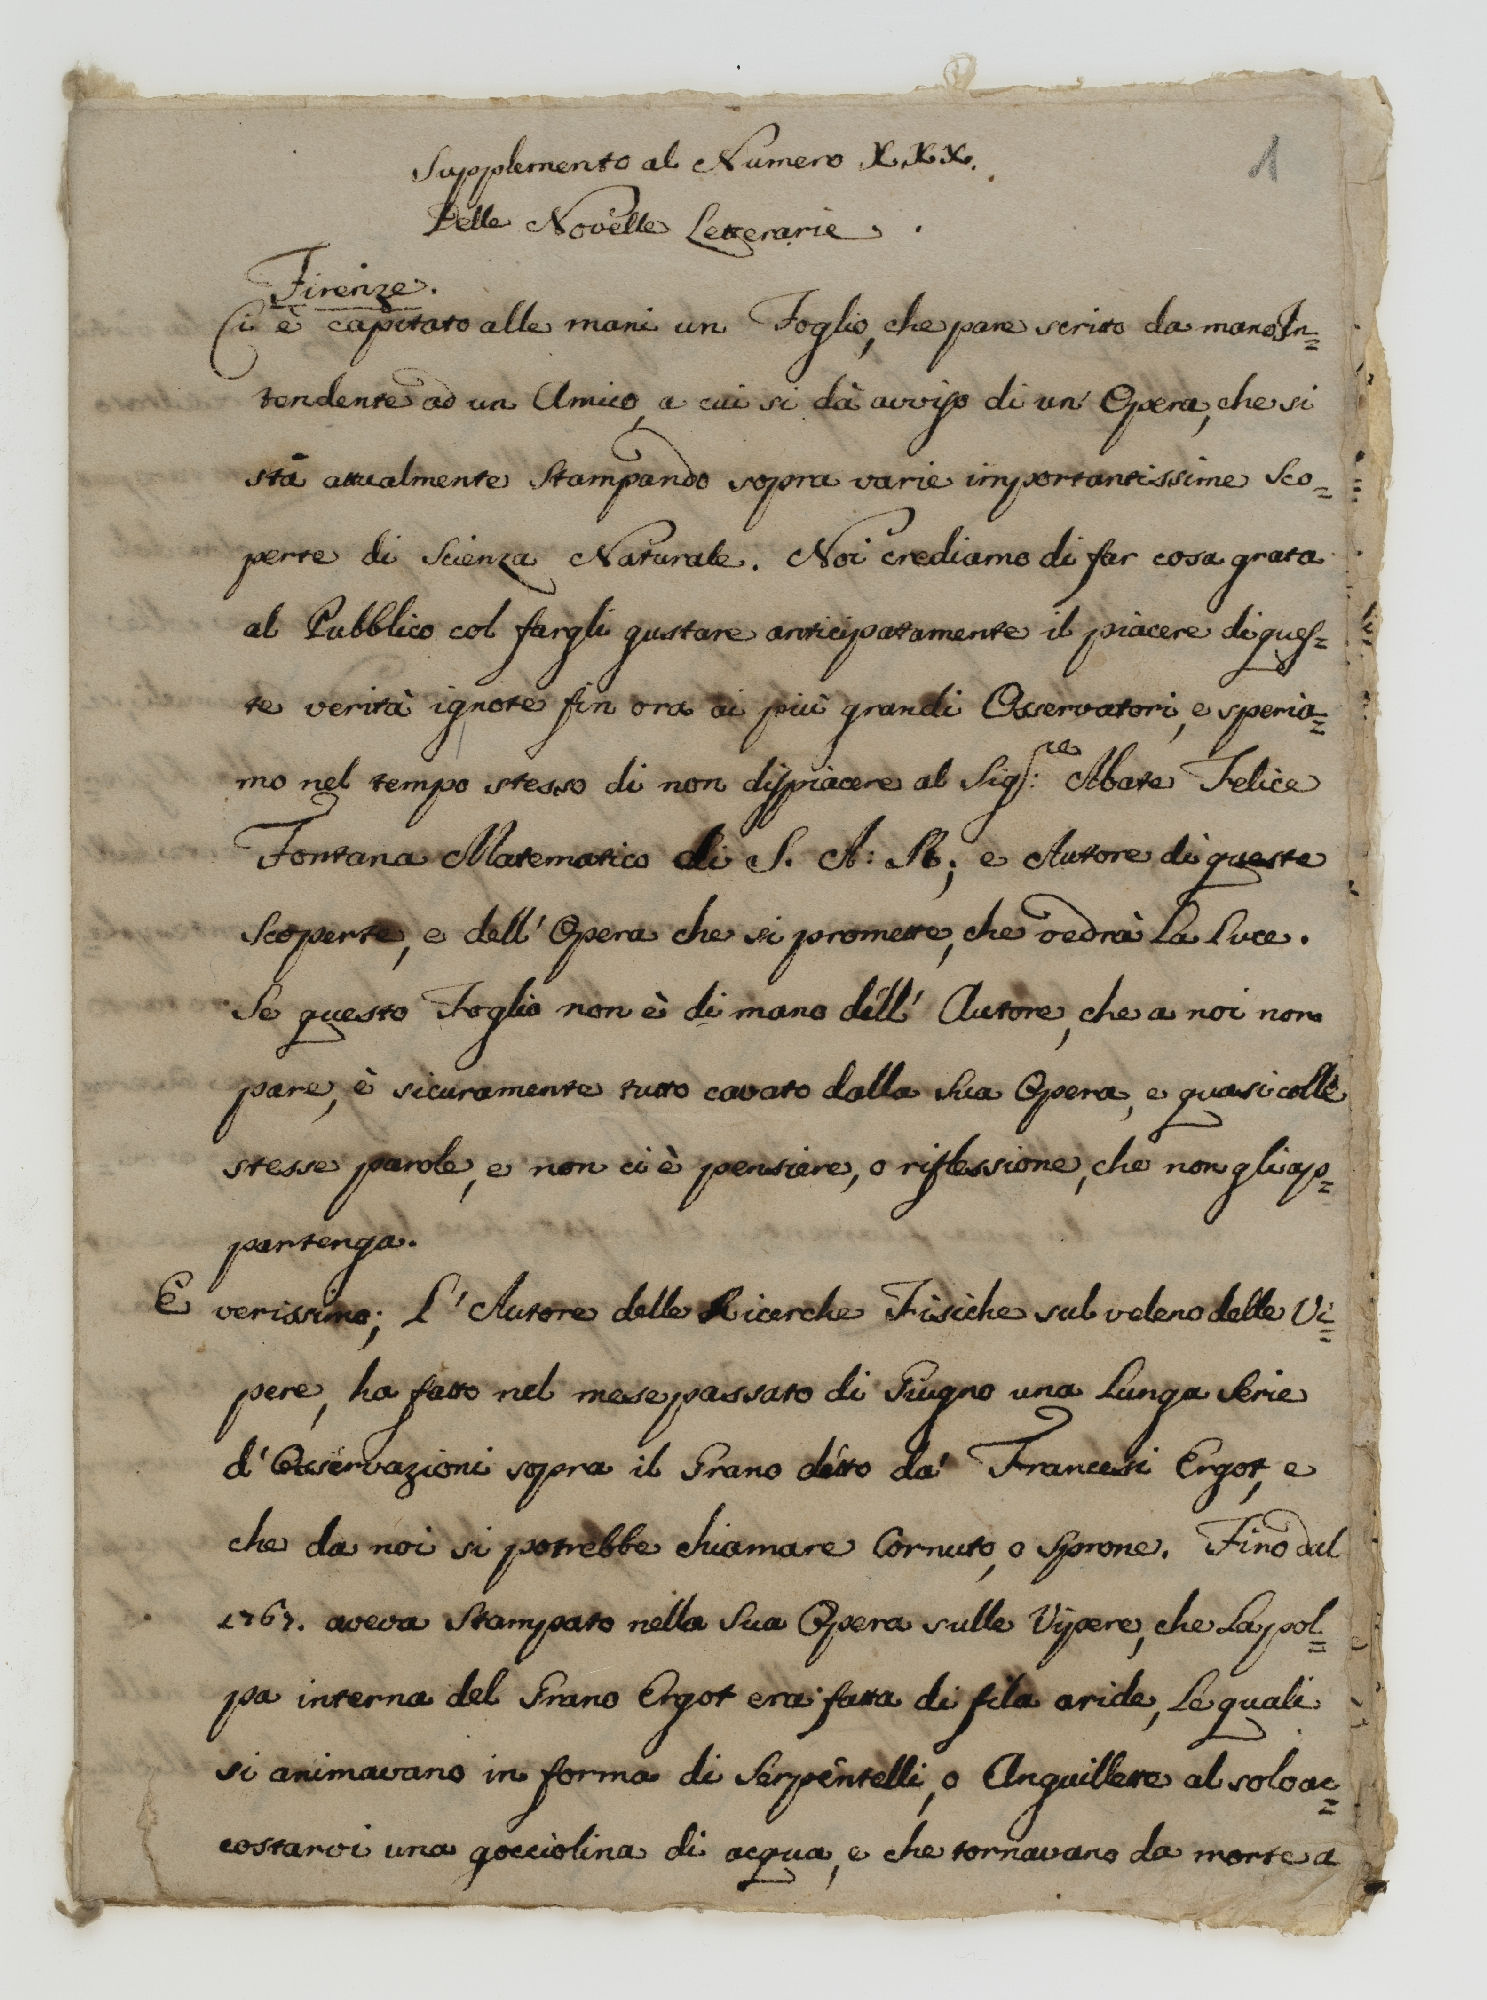 1
Supplemento al Numero XXX.
Delle Novelle Letterarie.
Firenze.
Ci è capitato alle mani un Foglio, che pare scritto da mano In=
tendente ad un Amico, a cui si dà avviso di un' Opera, che si
stà attualmente Stampando sopra varie importantissime Sco=
perte di Scienza Naturale. Noi crediamo di far cosa grata
al Pubblico col fargli gustare anticipatamente il piacere di ques=
te verità ignote fin ora ai più grandi Osservatori, e speria=
mo nel tempo stesso di non dispiacere al Sig:re Abate Felice
Fontana Matematico di S. A: R; e Autore di queste
Scoperte, e dell' Opera che si promette, che vedrà La Luce.
Se questo Foglio non è di mano dell' Autore, che a noi non
pare, è sicuramente tutto cavato dalla Sua Opera, e quasi colle
stesse parole, e non ci è pensiere, o riflessione, che non gli ap=
partenga.
È verissimo; L' Autore delle Ricerche Fisiche sul veleno delle Vi=
pere, ha fatto nel mese passato di Giugno una Lunga Serie
d' Osservazioni sopra il Grano detto da' Francesi Ergot, e
che da noi si potrebbe chiamare Cornuto, o Sprone. Fino dal
1767. aveva Stampato nella Sua Opera sulle Vipere, che La pol=
pa interna del Grano Ergot era fatta di fila aride, Le quali
si animavano in forma di Serpentelli, o Anguillette al solo ac=
costarvi una gocciolina di acqua, e che tornavano da morte a